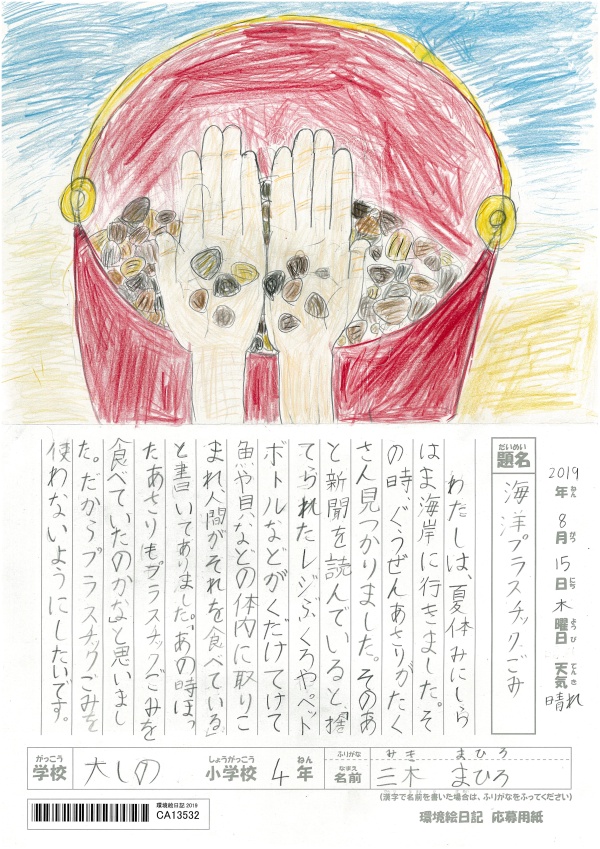 2019年ねん 8月がつ 15日にち 木曜日ようび 天気てんき 晴れ
題名だいめい 海洋プラスチックごみ
わたしは、夏休みにしら
はま海岸に行きました。そ
の時、ぐうぜんあさりがたく
さん見つかりました。そのあ
と新聞を読んでいると、「捨
てられたレジぶくろやペット
ボトルなどがくだけてけて
魚や貝などの体内に取りこ
まれ人間がそれを食べている」
と書いてありました。「あの時ほっ
たあさりもプラスチックごみを
食べていたのかな」と思いまし
た。だからプラスチックごみを
使わないようにしたいです。
学校がっこう 大しの 小学校しょうがっこう 4年ねん
ふりがな みき まひろ
名前なまえ 三木 まひろ
(漢字で名前を書いた場合は、ふりがなをふってください)
環境絵日記2019
CA13532
環境絵日記 応募用紙